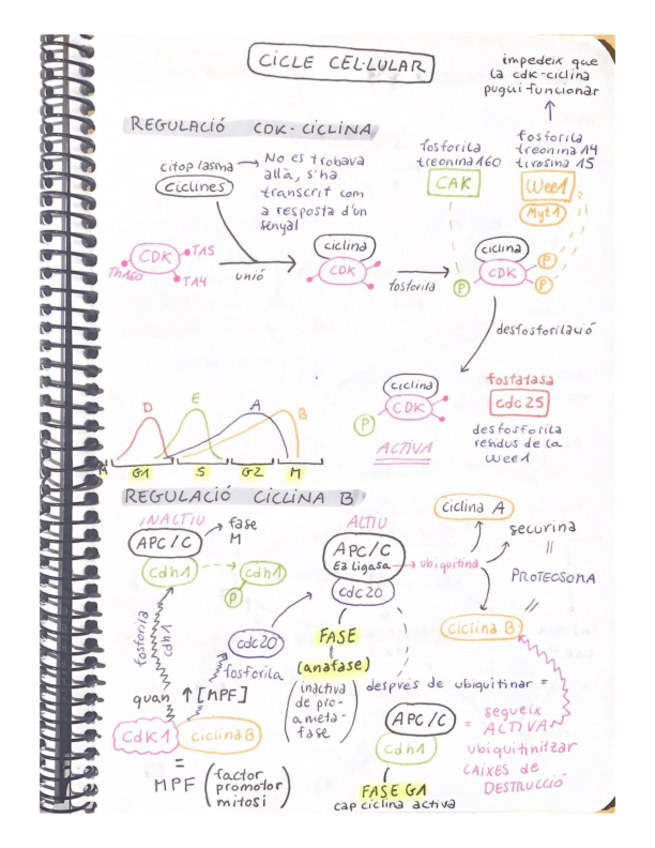 CICLE CEL·LULAR
impedeix que
la cdk-ciclina
pugui funcionar
REGULACIÓ CDK-CICLINA
citoplasma
Ciclines
No es trobava
allà, s'ha
transcrit com
a resposta d'un
senyal
fosforila
treonina 160
CAK
fosforila
treonina 14
tirosina 15
Wee1
Myt1
CDK
T15
Th160
T14
unió
ciclina
CDK
fosforila
ciclina
CDK
P
P
P
desfosforilació
ciclina
CDK
P
ACTIVA
fosfatasa
cdc25
desfosforila
residus de la
Wee1
D
E
A
B
M
G1
S
G2
M
REGULACIÓ CICLINA B
INACTIU
APC/C
Cdh1
fase
M
cdh1
P
fosforila
cdh1
quan ↑ [MPF]
cdc20
fosforila
CdK1
ciclina B
=
MPF (factor
promotor
mitosi)
ACTIU
APC/C
E3 Ligasa
cdc20
ubiquitina
ciclina A
securina
=
PROTEOSOMA
=
ciclina B
FASE
(anafase)
(inactiva
de pro-
ameta-
fase)
després de ubiquitinar =
APC/C
Cdh1
= segueix
ACTIVA
ubiquitinitzar
CAIXES de
DESTRUCCIÓ
FASE G1
cap ciclina activa